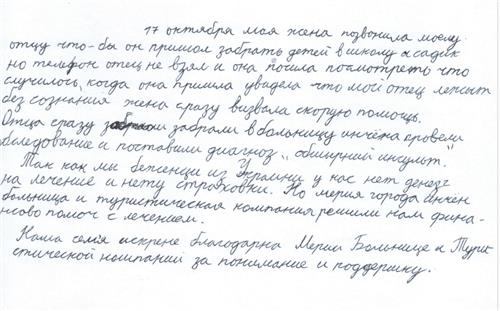 17 октября моя жена позвонила моему
отцу что-бы он пришол забрать детей в школу и садик
но телефон отец не взял и она пошла посмотреть что
случилось, когда она пришла увидела что мой отец лежыт
без сознания жена сразу визвала скорую помощь.
Отца сразу забрали в больницу инчена провели
обследование и поставили диагноз "обширний инсульт."
Так как ми беженци из Украини у нас нет денег
на лечение и нету страховки. Но мерия города инчен
больница и туристическая компания решили нам фина-
нсово помоч с лечением.
Наша семя искрене благодарна Мерии Больнице и Турис
стической компаний за понимание и поддержку.